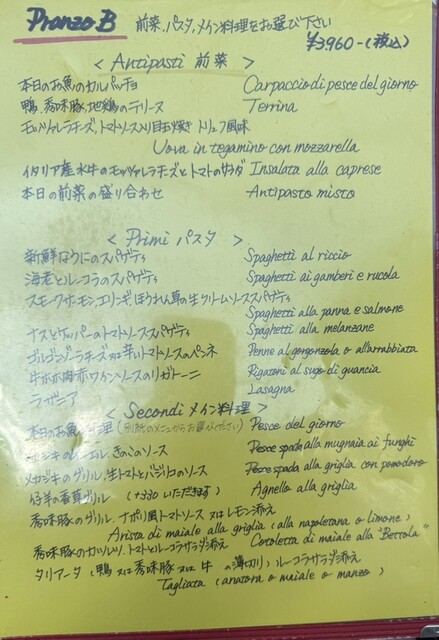 Pranzo B 前菜、パスタ、メイン料理をお選び下さい
¥3960-(税込)
< Antipasti 前菜 >
本日のお魚のカルパッチョ Carpaccio di pesce del giorno
鴨、秀味豚、地鶏のテリーヌ Terrina
モッツァレラチーズ、トマトソース入り目玉焼き トリュフ風味
Uova in tegamino con mozzarella
イタリア産水牛のモッツァレラチーズとトマトのサラダ Insalata alla caprese
本日の前菜の盛り合わせ Antipasto misto
< Primi パスタ >
新鮮なうにのスパゲティ Spaghetti al riccio
海老とルーコラのスパゲティ Spaghetti ai gamberi e rucola
スモークサーモン、エリンギ、ほうれん草の生クリームソーススパゲティ
Spaghetti alla panna e salmone
ナスとケッパーのトマトソーススパゲティ Spaghetti alla melanzane
ゴルゴンゾーラチーズ又は辛いトマトソースのペンネ Penne al gorgonzola o all'arrabbiata
牛ホホ肉赤ワインソースのリガトーニ Rigatoni al sugo di guancia
ラザニア Lasagna
< Secondi メイン料理 >
本日のお魚料理 (別紙のメニューからお選びください) Pesce del giorno
のムニエル、きのこのソース Pesce spada alla mugnaia ai funghi
メカジキのグリル、生トマトとバジリコのソース Pesce spada alla griglia con pomodoro
仔羊の香草グリル (+330いただきます) Agnello alla griglia
秀味豚のグリル、ナポリ風トマトソース 又は レモン添え
Arista di maiale alla griglia (alla napoletana o limone)
秀味豚のカツレツ、トマトとルーコラサラダ添え Cotoletta di maiale alla "Bettola"
タリアータ (鴨 又は 秀味豚 又は 牛 の薄切り) ルーコラサラダ添え
Tagliata (anatora o maiale o manzo)